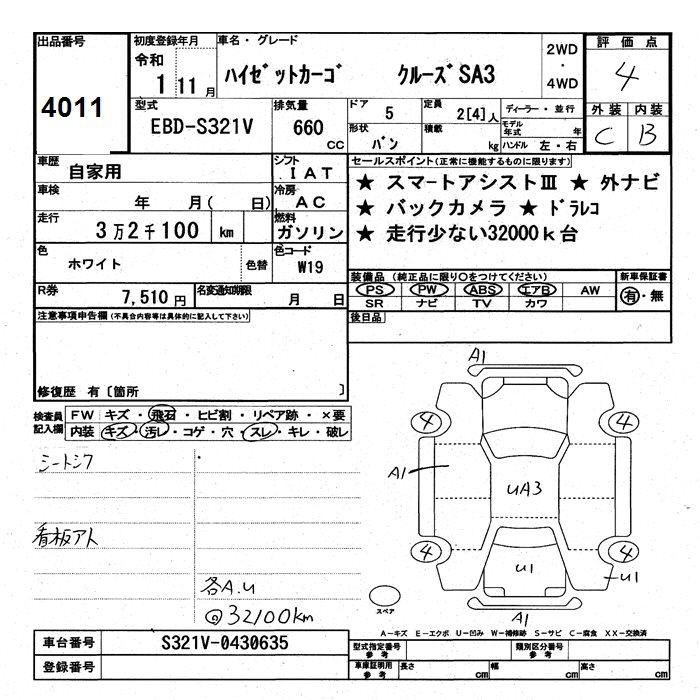 出品番号
4011
初度登録年月
令和
1 11月
車名・グレード
ハイゼットカーゴ クルーズSA3
2WD
・
4WD
評価点
4
外装 内装
C B
型式
EBD-S321V
排気量
660
CC
ドア
5
定員
2[4]人
ディーラー・並行
形状
バン
積載
kg
モデル年式
年
ハンドル 左・右
車歴
自家用
シフト
IAT
車検
年 月( 日)
冷房
AC
走行
3万2千100 km
燃料
ガソリン
色
ホワイト
色替
色コード
W19
R券
7,510円
名変通知期限
月 日
セールスポイント(正常に機能するものに限ります)
★ スマートアシストⅢ ★ 外ナビ
★ バックカメラ ★ ドラレコ
★ 走行少ない32000k台
装備品(純正品に限り○をつけてください)
新車保証書
PS PW ABS エアB AW
SR ナビ TV カワ
有・無
後日品
注意事項申告欄(不具合内容等は具体的に記入して下さい)
修復歴 有〔箇所 〕
検査員
記入欄
FW キズ・飛石・ヒビ割・リペア跡・×要
内装 キズ・汚レ・コゲ・穴・スレ・キレ・破レ
シートシワ
看板アト
各A.U
@32100km
A1
4
4
A1
UA3
4
4
U1
U1
A1
スペア
A-キズ E-エクボ U-凹み W-補修跡 S-サビ C-腐食 XX-交換済
車台番号
S321V-0430635
登録番号
型式指定番号
参考
類別区分番号
参考
車庫証明用
参考
長さ cm
幅 cm
高さ cm